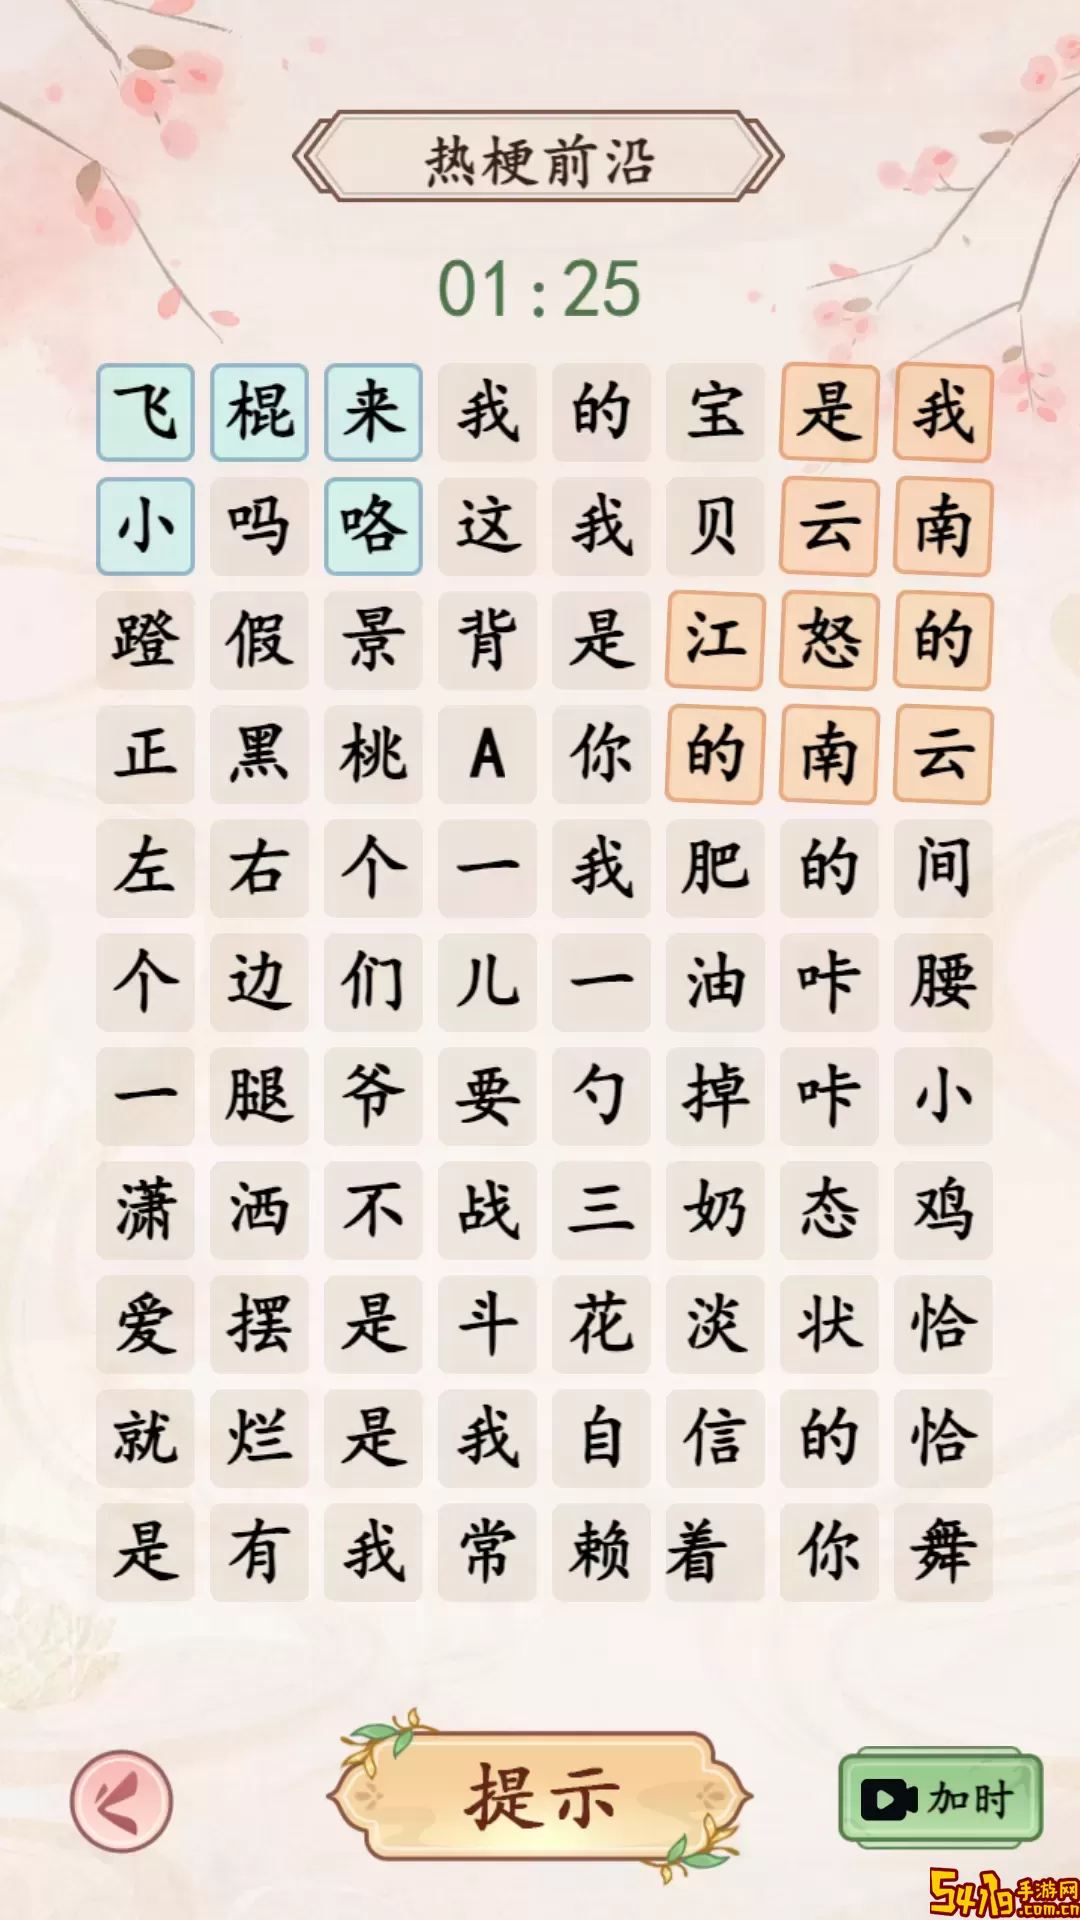 热梗前沿
01:25
飞棍来我的宝是我
小吗咯这我贝云南
蹬假景背是江怒的
正黑桃A你的南云
左右个一我肥的间
个边们儿一油咔腰
一腿爷要勺掉咔小
潇洒不战三奶态鸡
爱摆是斗花淡状恰
就烂是我自信的恰
是有我常赖着你舞
提示
加时
5479手游网
.com.cn